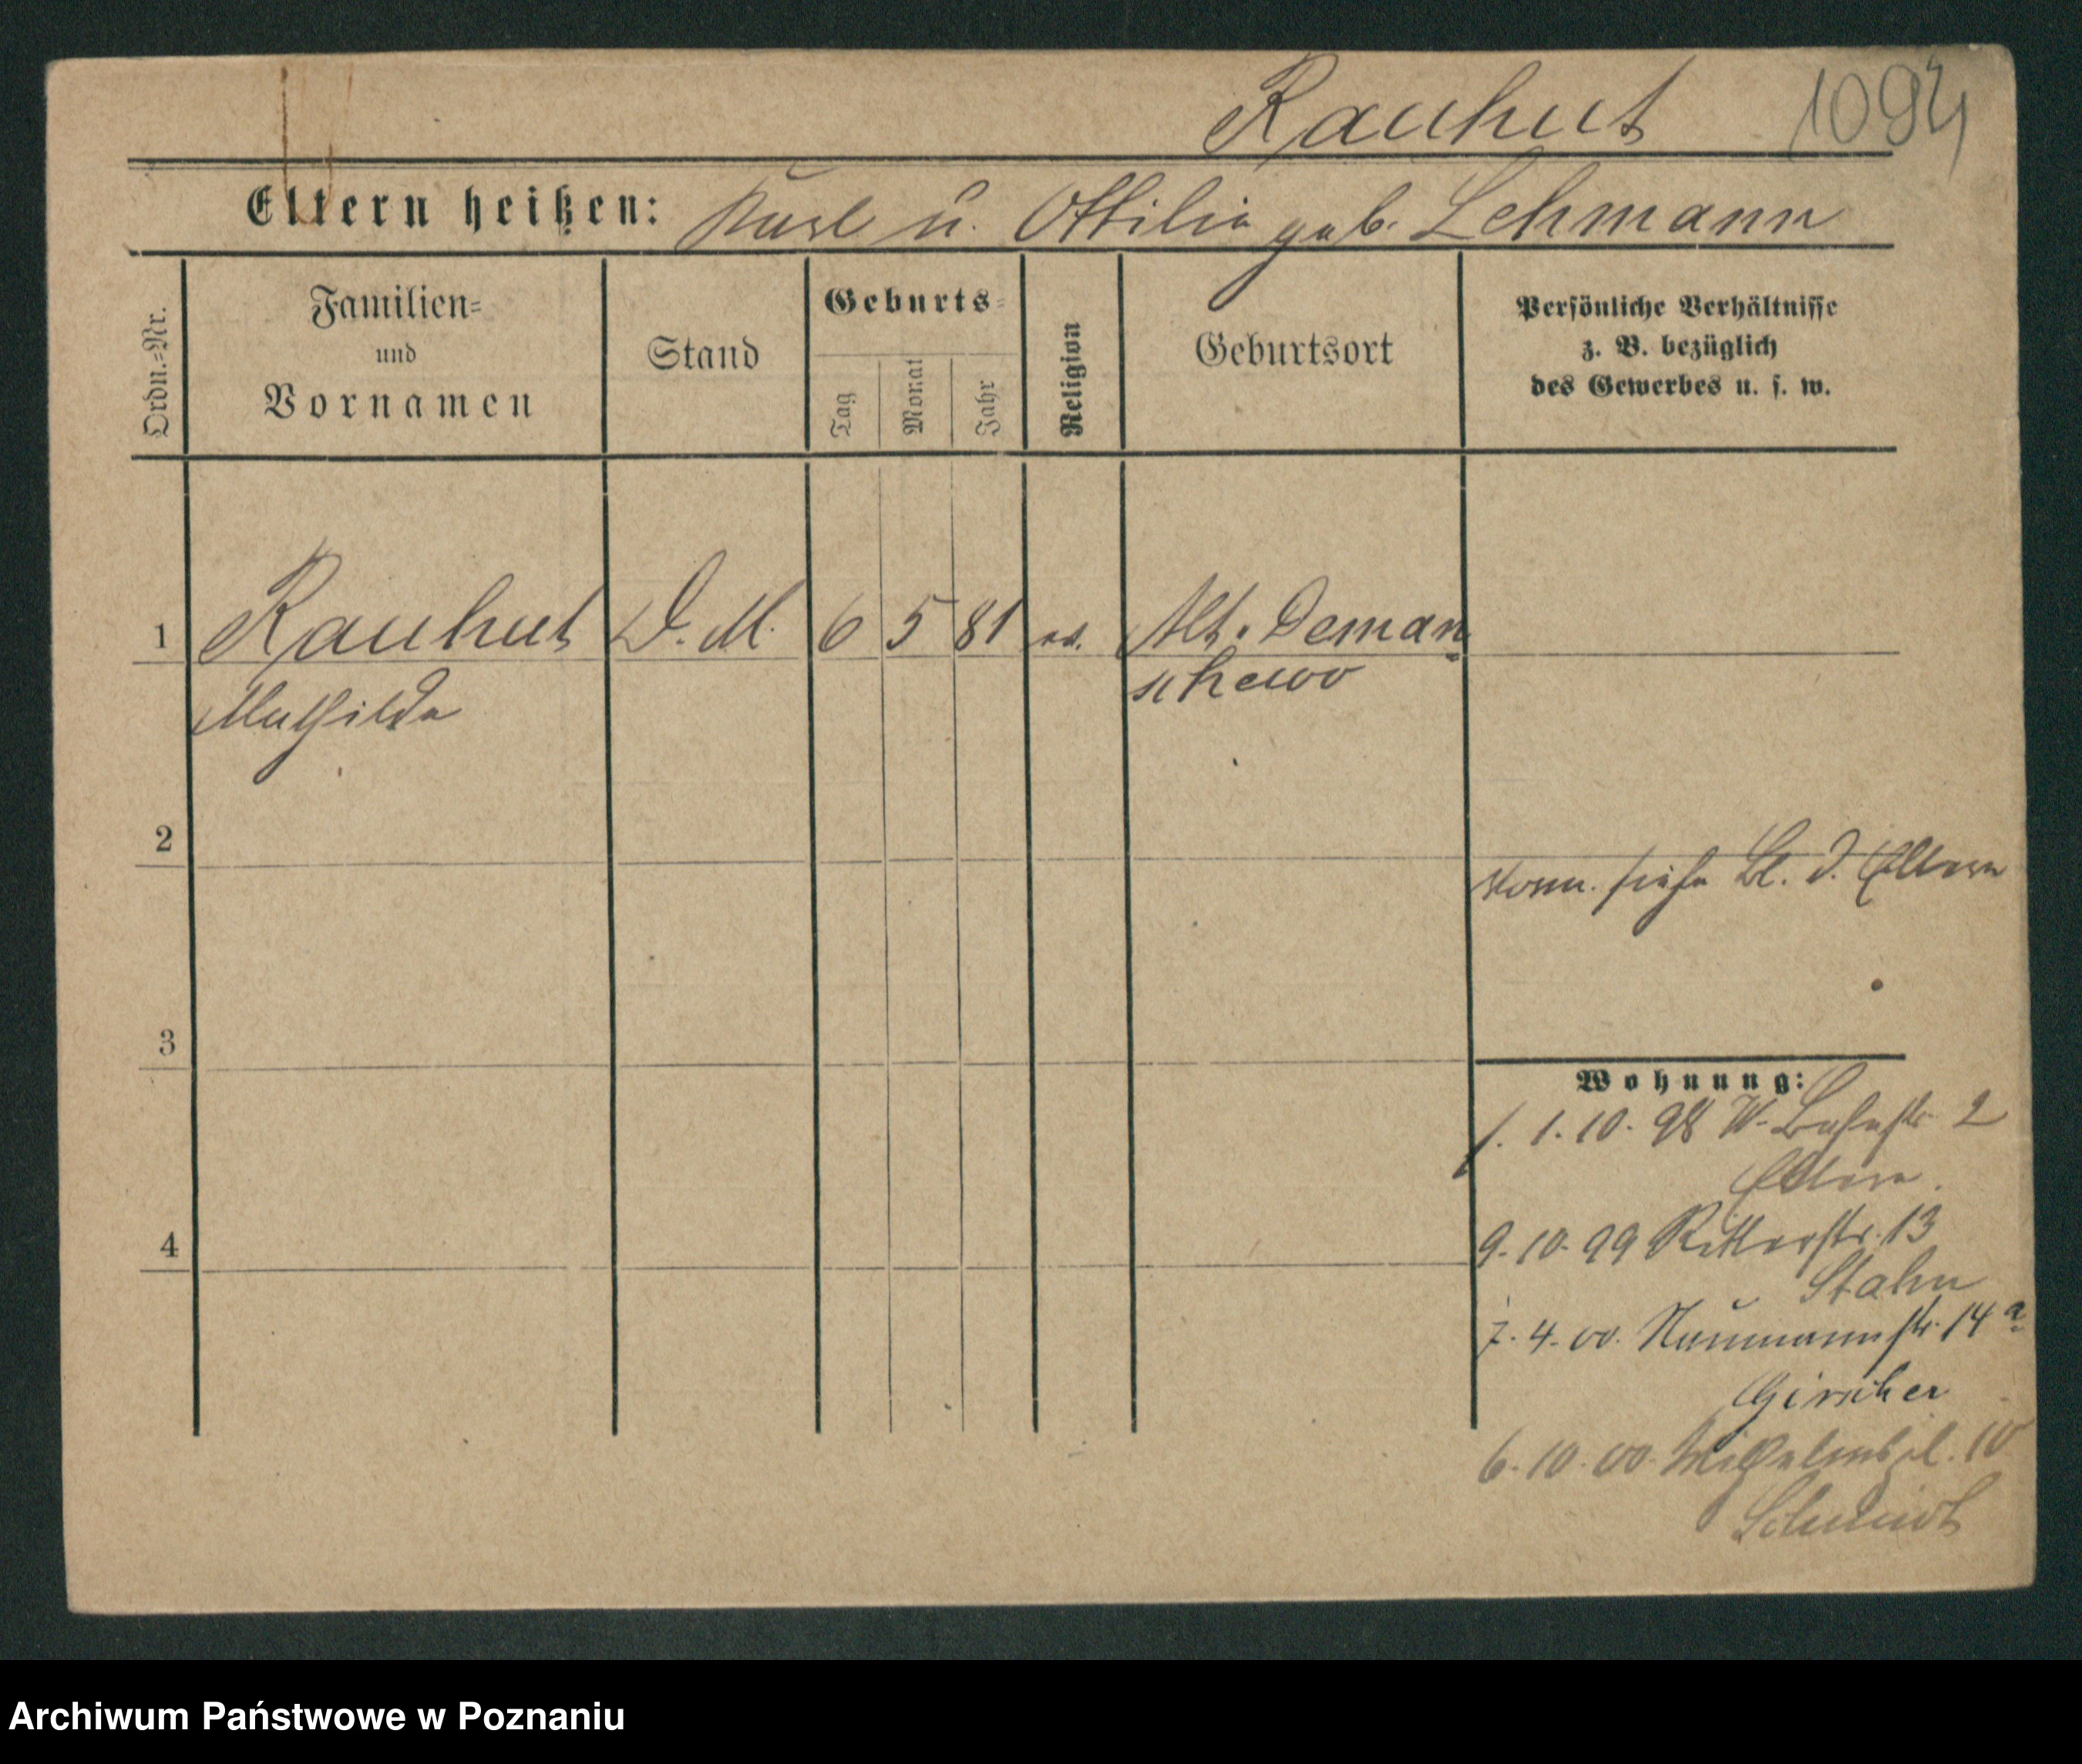 Rauhut 1094
Eltern heißen: Karl u. Ottilie geb. Lehmann
Ordn.=Nr.
Familien=
und
Vornamen
Stand
Geburts=
Tag
Monat
Jahr
Religion
Geburtsort
Persönliche Verhältnisse
z. B. bezüglich
des Gewerbes u. s. w.
1 Rauhut D. M. 6 5 81 ev. Alt-Deman
Mathilde schewo
2
vorm. siehe Bl. d. Eltern
3
Wohnung:
1. 1.10.98 W. Bahnstr 2
Eltern.
4
9.10.99 Ritterstr. 13
Stahn
7.4.00. Naumannstr. 14a
Girscher
6.10.00. 10
Schmidt
Archiwum Państwowe w Poznaniu